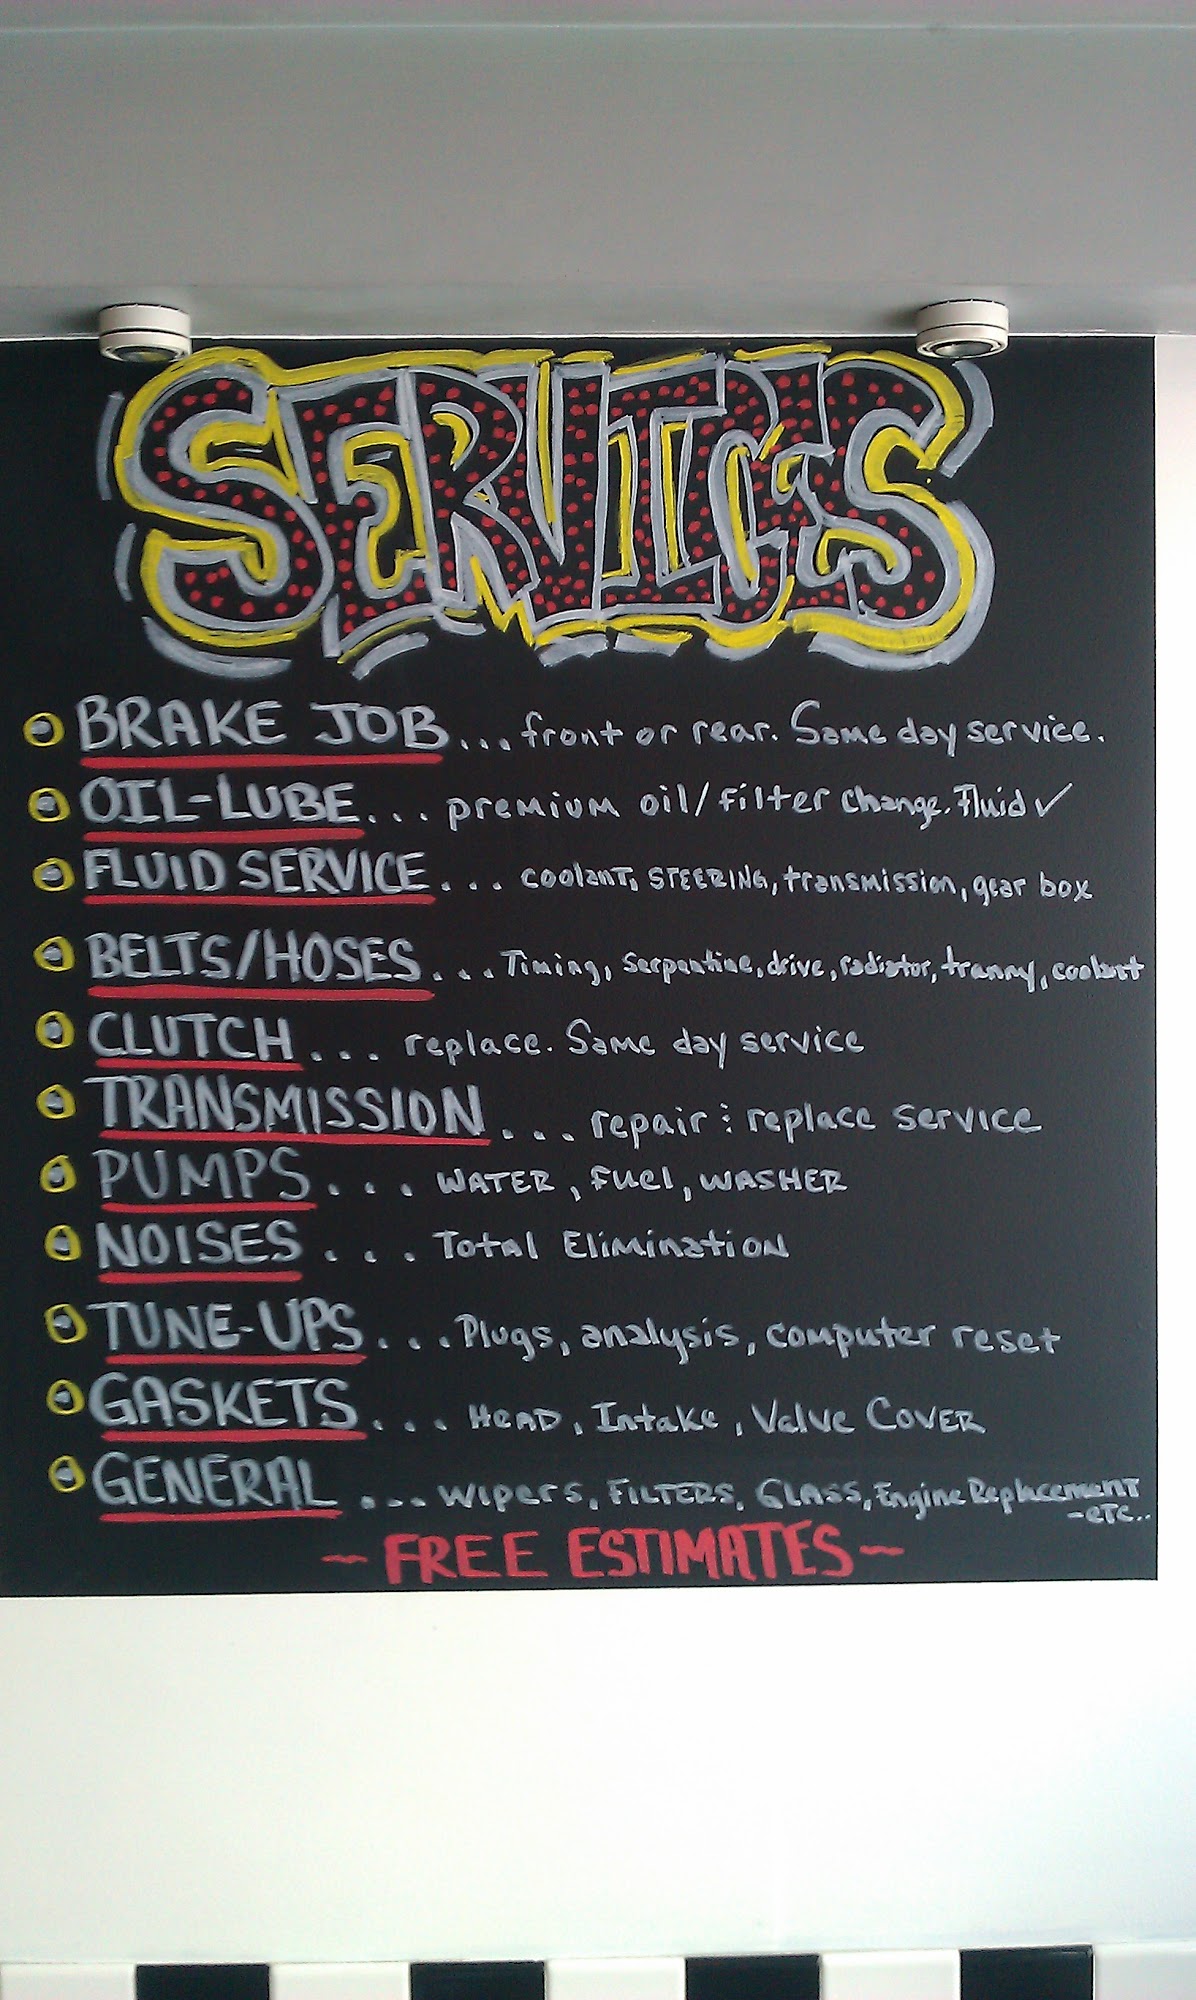 SERVICES
BRAKE JOB... front or rear. Same day service.
OIL-LUBE... premium oil/filter change. Fluid ✓
FLUID SERVICE... coolant, STEERING, transmission, gear box
BELTS/HOSES... Timing, serpentine, drive, radiator, tranny, coolant
CLUTCH... replace. Same day service
TRANSMISSION... repair & replace service
PUMPS... WATER, Fuel, WASHER
NOISES... Total Elimination
TUNE-UPS... Plugs, analysis, computer reset
GASKETS... HEAD, Intake, Valve COVER
GENERAL... Wipers, FILTERS, GLASS, Engine Replacement
-eTc..
~FREE ESTIMATES~